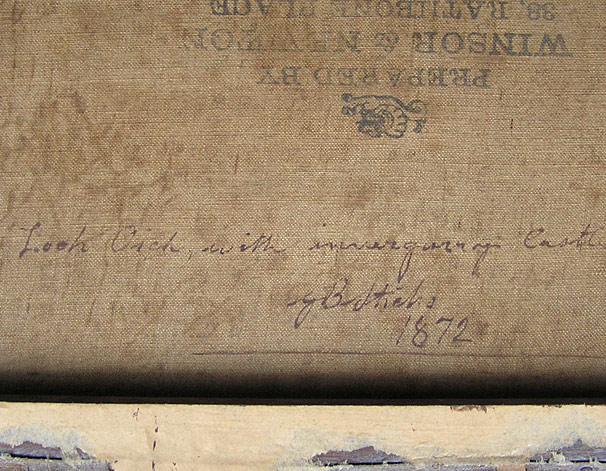 38, RATHBONE PLACE
WINSOR & NEWTON
PREPARED BY
Loch Oich, with invergarry Castle
1872